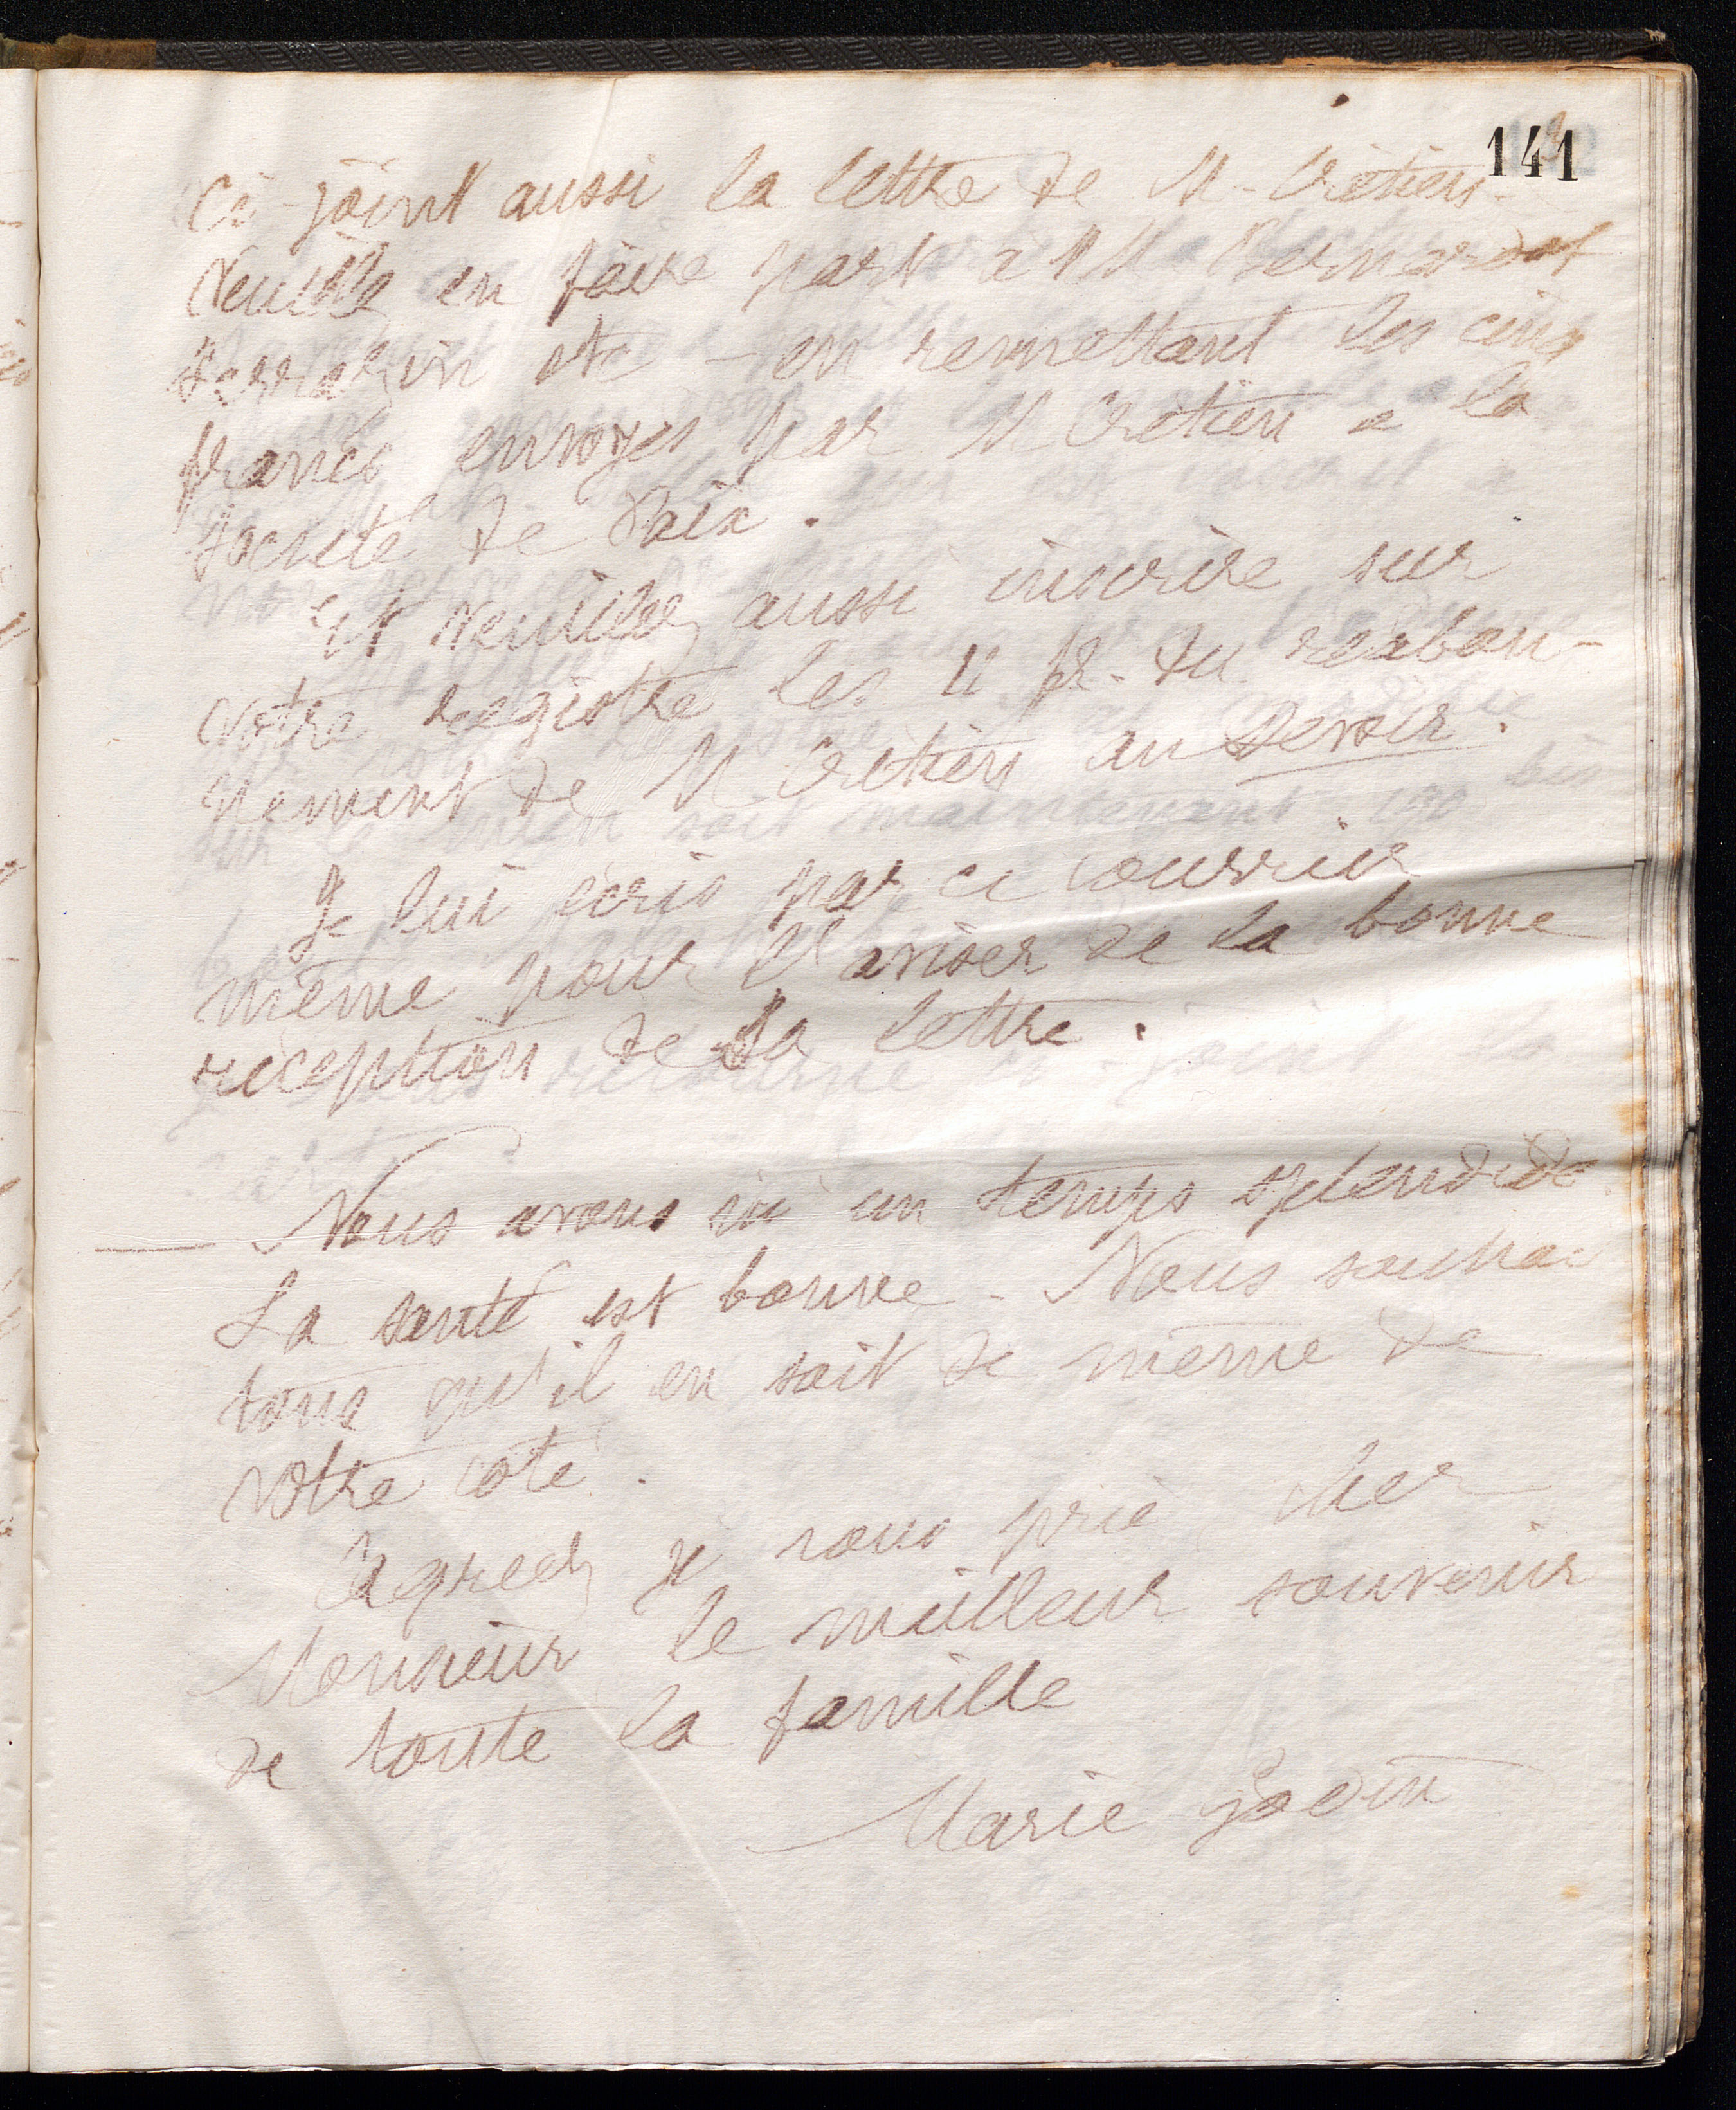 141
Ci-joint aussi la lettre de M. Crétien.
Veuillez en faire part à M Bernardot
Sarrazin etc - en remettant les cinq
francs envoyés par M Crétien a la
Société de Paix.
Et Veuillez aussi inscrire sur
votre registre les 11 fr. du réabon-
nement de M Crétien au Devoir.
Je lui écris par ce courrier
même pour l'aviser de la bonne
réception de sa lettre.
Nous avons ici un temps splendide
La santé est bonne - Nous souhai
tons qu'il en soit de même de
votre côté.
Agréez je vous prie, cher
Monsieur le meilleur souvenir
de toute la famille
Marie Godin